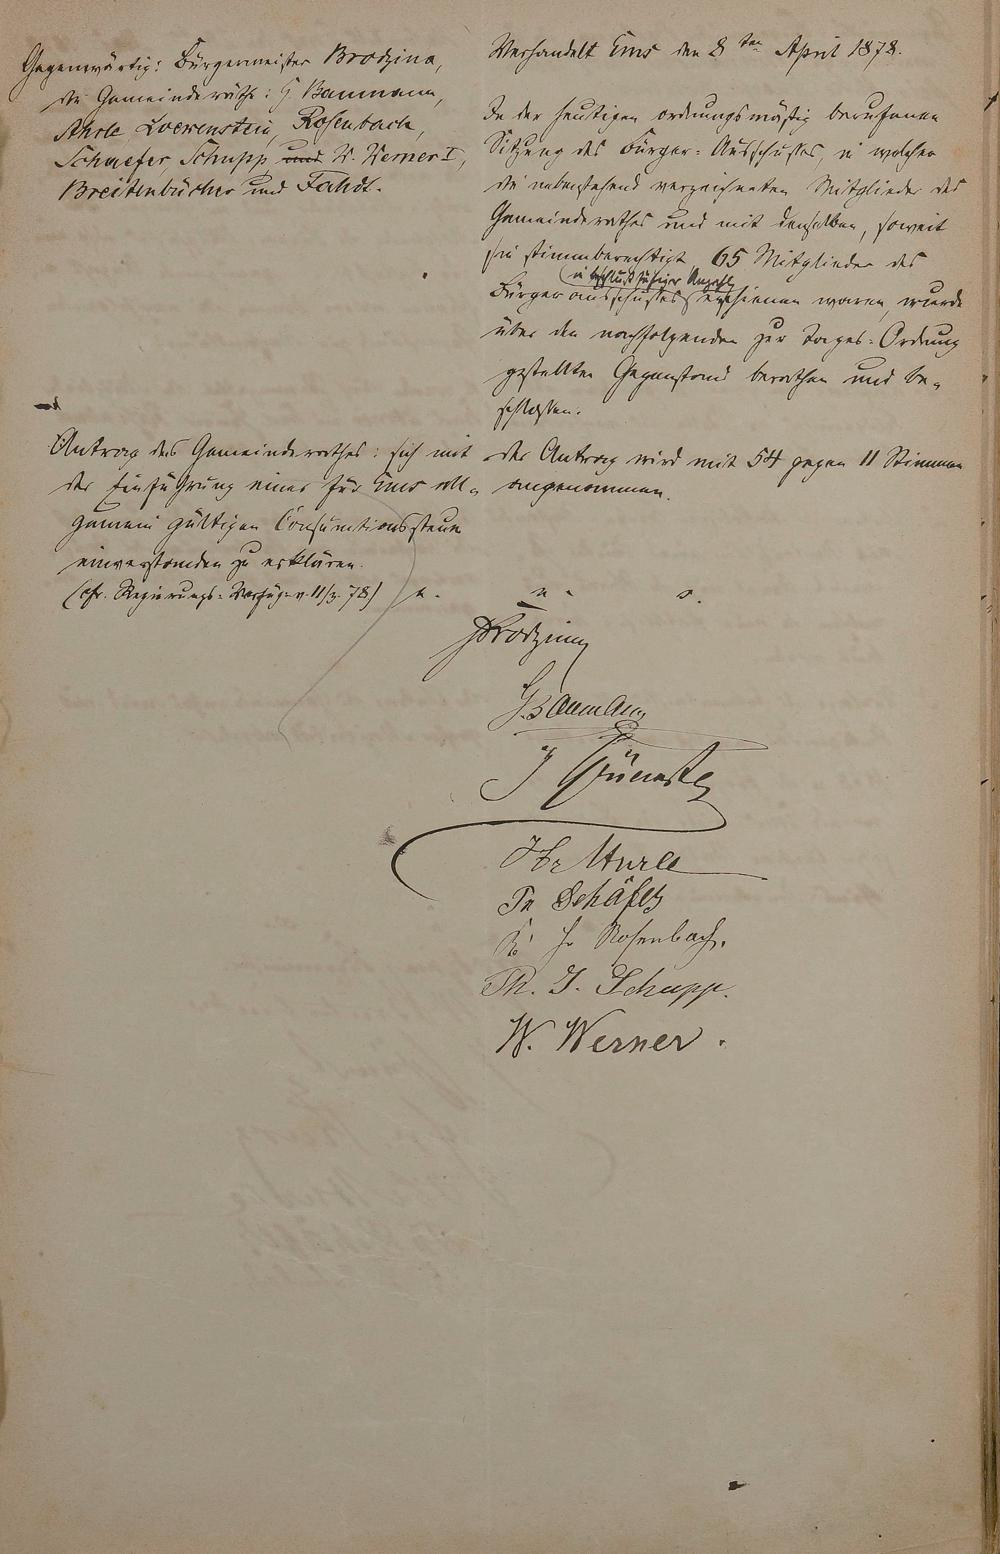 Gegenwärtig: Bürgermeister Brodzina,
die Gemeinderäthe: G. Baumann,
Ahrle, Loewenstein, Rosenbach,
Schaefer, Schupp und W. Werner I,
Breitenbücher und Fahdt.
Verhandelt Ems den 8 ten April 1878.
In der heutigen ordnungsmäßig berufenen
Sitzung des Bürger-Ausschußes, in welcher
die nebenstehend verzeichneten Mitglieder des
Gemeinderathes und mit denselben, soweit
sie stimmberechtigt 65 Mitglieder des
in beschlußfähiger Anzahl
Bürgerausschußes erschienen waren, wurde
über den nachfolgenden zur Tages-Ordnung
gestellten Gegenstand berathen und be-
schlossen.
Antrag des Gemeinderathes: sich mit
der Einführung einer für Ems all-
gemein gültigen Consumtionssteuer
einverstanden zu erklären.
(cfr. Regierungs-Verfüg. v. 11/3. 78)
Der Antrag wird mit 54 gegen 11 Stimmen
angenommen.
v. u. g.
Brodzina
G. Baumann
Schäfer
Rosenbach.
Ph. J. Schupp.
W. Werner.